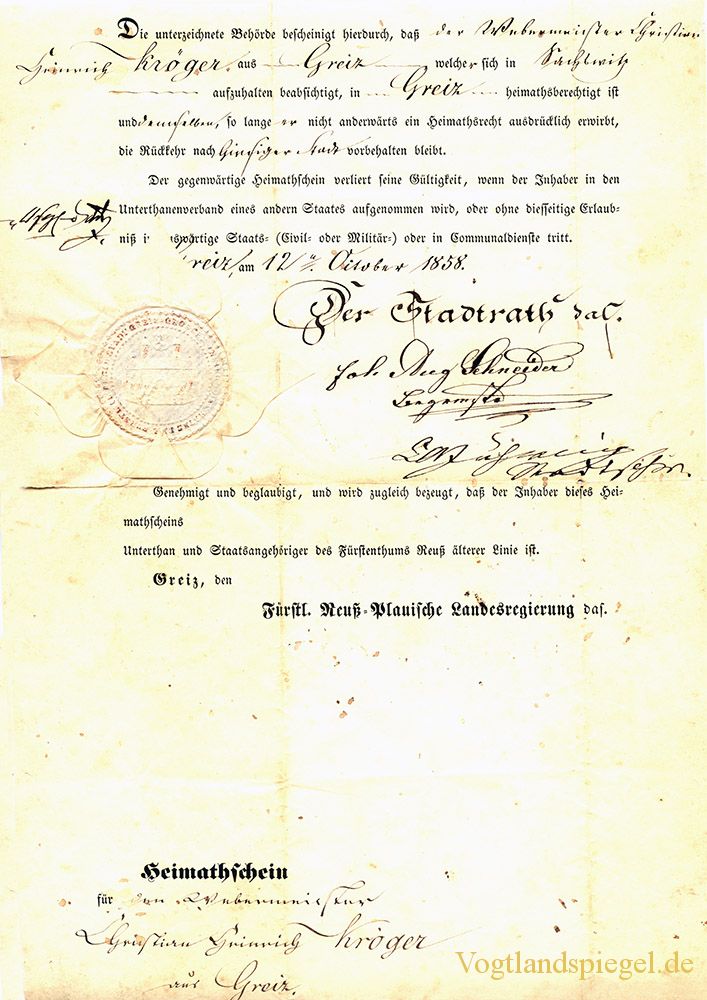 Die unterzeichnete Behörde bescheinigt hierdurch, daß der Webermeister Christian
Heinrich Kröger aus Greiz welcher sich in Sachswitz
aufzuhalten beabsichtigt, in Greiz heimathsberechtigt ist
und demselben, so lange er nicht anderwärts ein Heimathsrecht ausdrücklich erwirbt,
die Rückkehr nach hiesiger Stadt vorbehalten bleibt.
Der gegenwärtige Heimathschein verliert seine Gültigkeit, wenn der Inhaber in den
Unterthanenverband eines andern Staates aufgenommen wird, oder ohne diesseitige Erlaub-
niß i swärtige Staats- (Civil- oder Militär-) oder in Communaldienste tritt.
reiz, am 12 October 1858.
Der Stadtrath das.
Aug Schneider
Genehmigt und beglaubigt, und wird zugleich bezeugt, daß der Inhaber dieses Hei-
mathscheins
Unterthan und Staatsangehöriger des Fürstenthums Reuß älterer Linie ist.
Greiz, den
Fürstl. Reuß-Plauische Landesregierung das.
Heimathschein
für den Webermeister
Christian Heinrich Kröger
aus Greiz.
Vogtlandspiegel.de